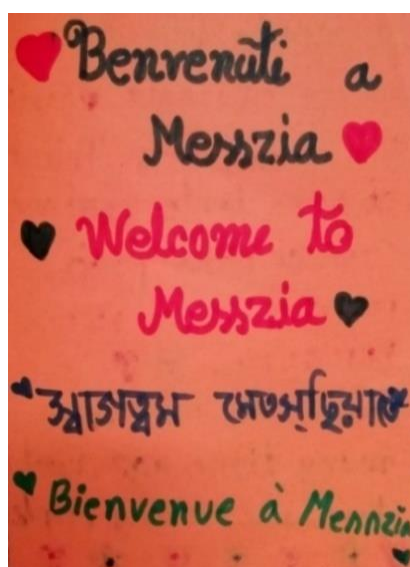 Benvenuti a
Messzia
Welcome to
Messzia
স্বাগত্বম মেতসছিয়াতে
Bienvenue à Mennzia